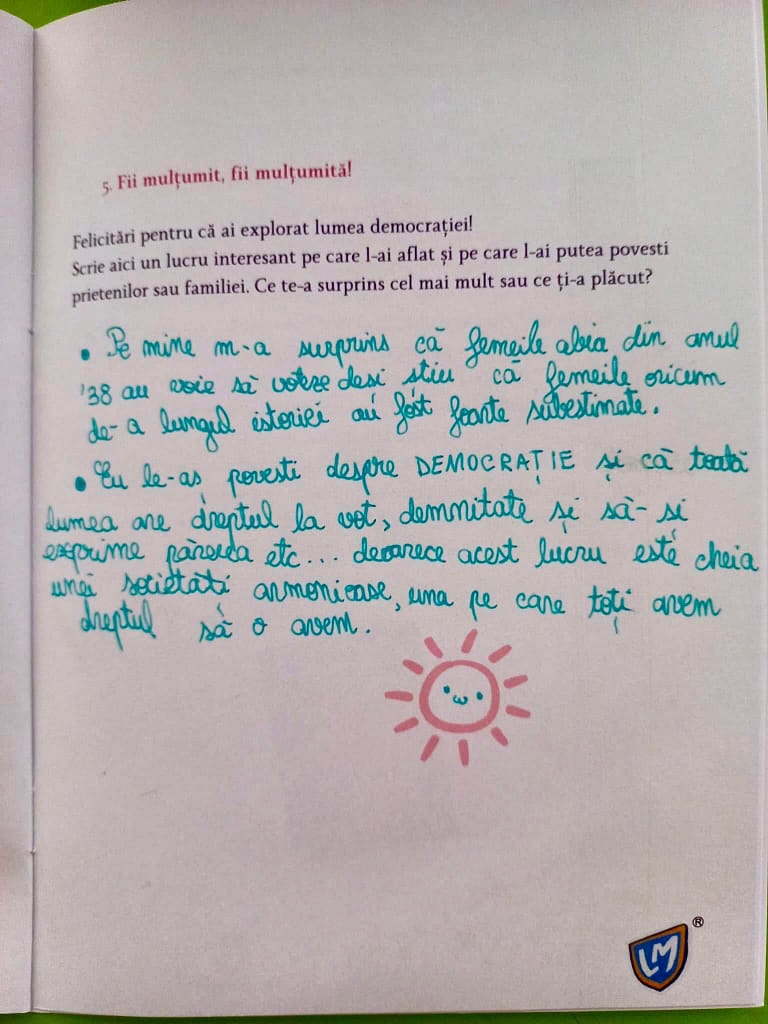 5. Fii mulțumit, fii mulțumită!
Felicitări pentru că ai explorat lumea democrației!
Scrie aici un lucru interesant pe care l-ai aflat și pe care l-ai putea povesti
prietenilor sau familiei. Ce te-a surprins cel mai mult sau ce ți-a plăcut?
• Pe mine m-a surprins că femeile abia din anul
'38 au voie să voteze desi știu că femeile oricum
de-a lungul istoriei au fost foarte subestimate.
• Eu le-aș povesti despre DEMOCRAȚIE și că toată
lumea are dreptul la vot, demnitate și să-și
exprime părerea etc... deoarece acest lucru este cheia
unei societăți armonioase, una pe care toți avem
dreptul să o avem.
LM
®